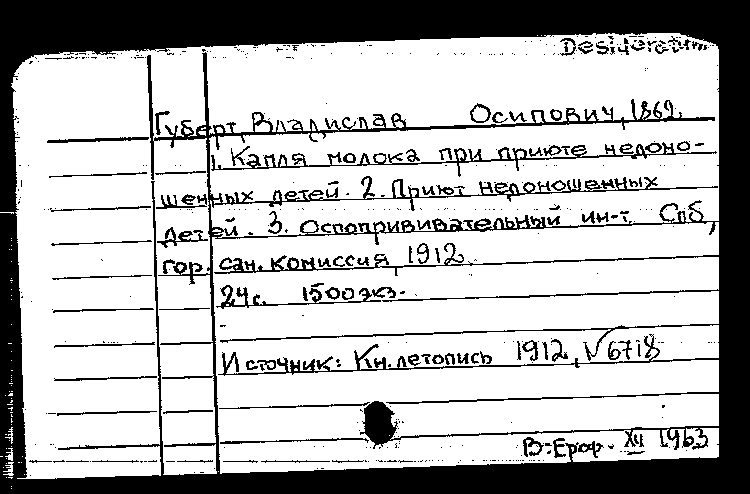 Desideratum
Губерт, Владислав Осипович, 1862.
1. Капля молока при приюте недоно-
шенных детей. 2. Приют недоношенных
детей. 3. Оспопрививательный ин-т. Спб,
гор. сан. комиссия, 1912.
24с. 1500 экз.
Источник: Кн. летопись 1912, √6718
В: Ероф. XII 1963